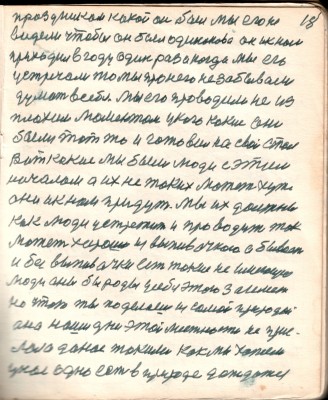 18
праздником какой он был мы его не
видели чтобы он был одинаков а он к нам
приходил в году один раз когда мы его
встречали то мы про него не забываем
думать всегда. Мы его проводили не из
плохим моментом у кого какие они
были тот то и готовил на свой стол
Вот какие мы были люди с этим
началом а их не таких может хуже
они и к нам придут. Мы их должны
как люди встретить и проводить так
может хорошо и выпивачкого а бывает
и без выпивачки есть такие не имеющие
люди
но что ты поделаешь и самой природы
она нашли дни этой местности не при-
слала данае такими как мы хотели
у нас одно есть в природе дождаться